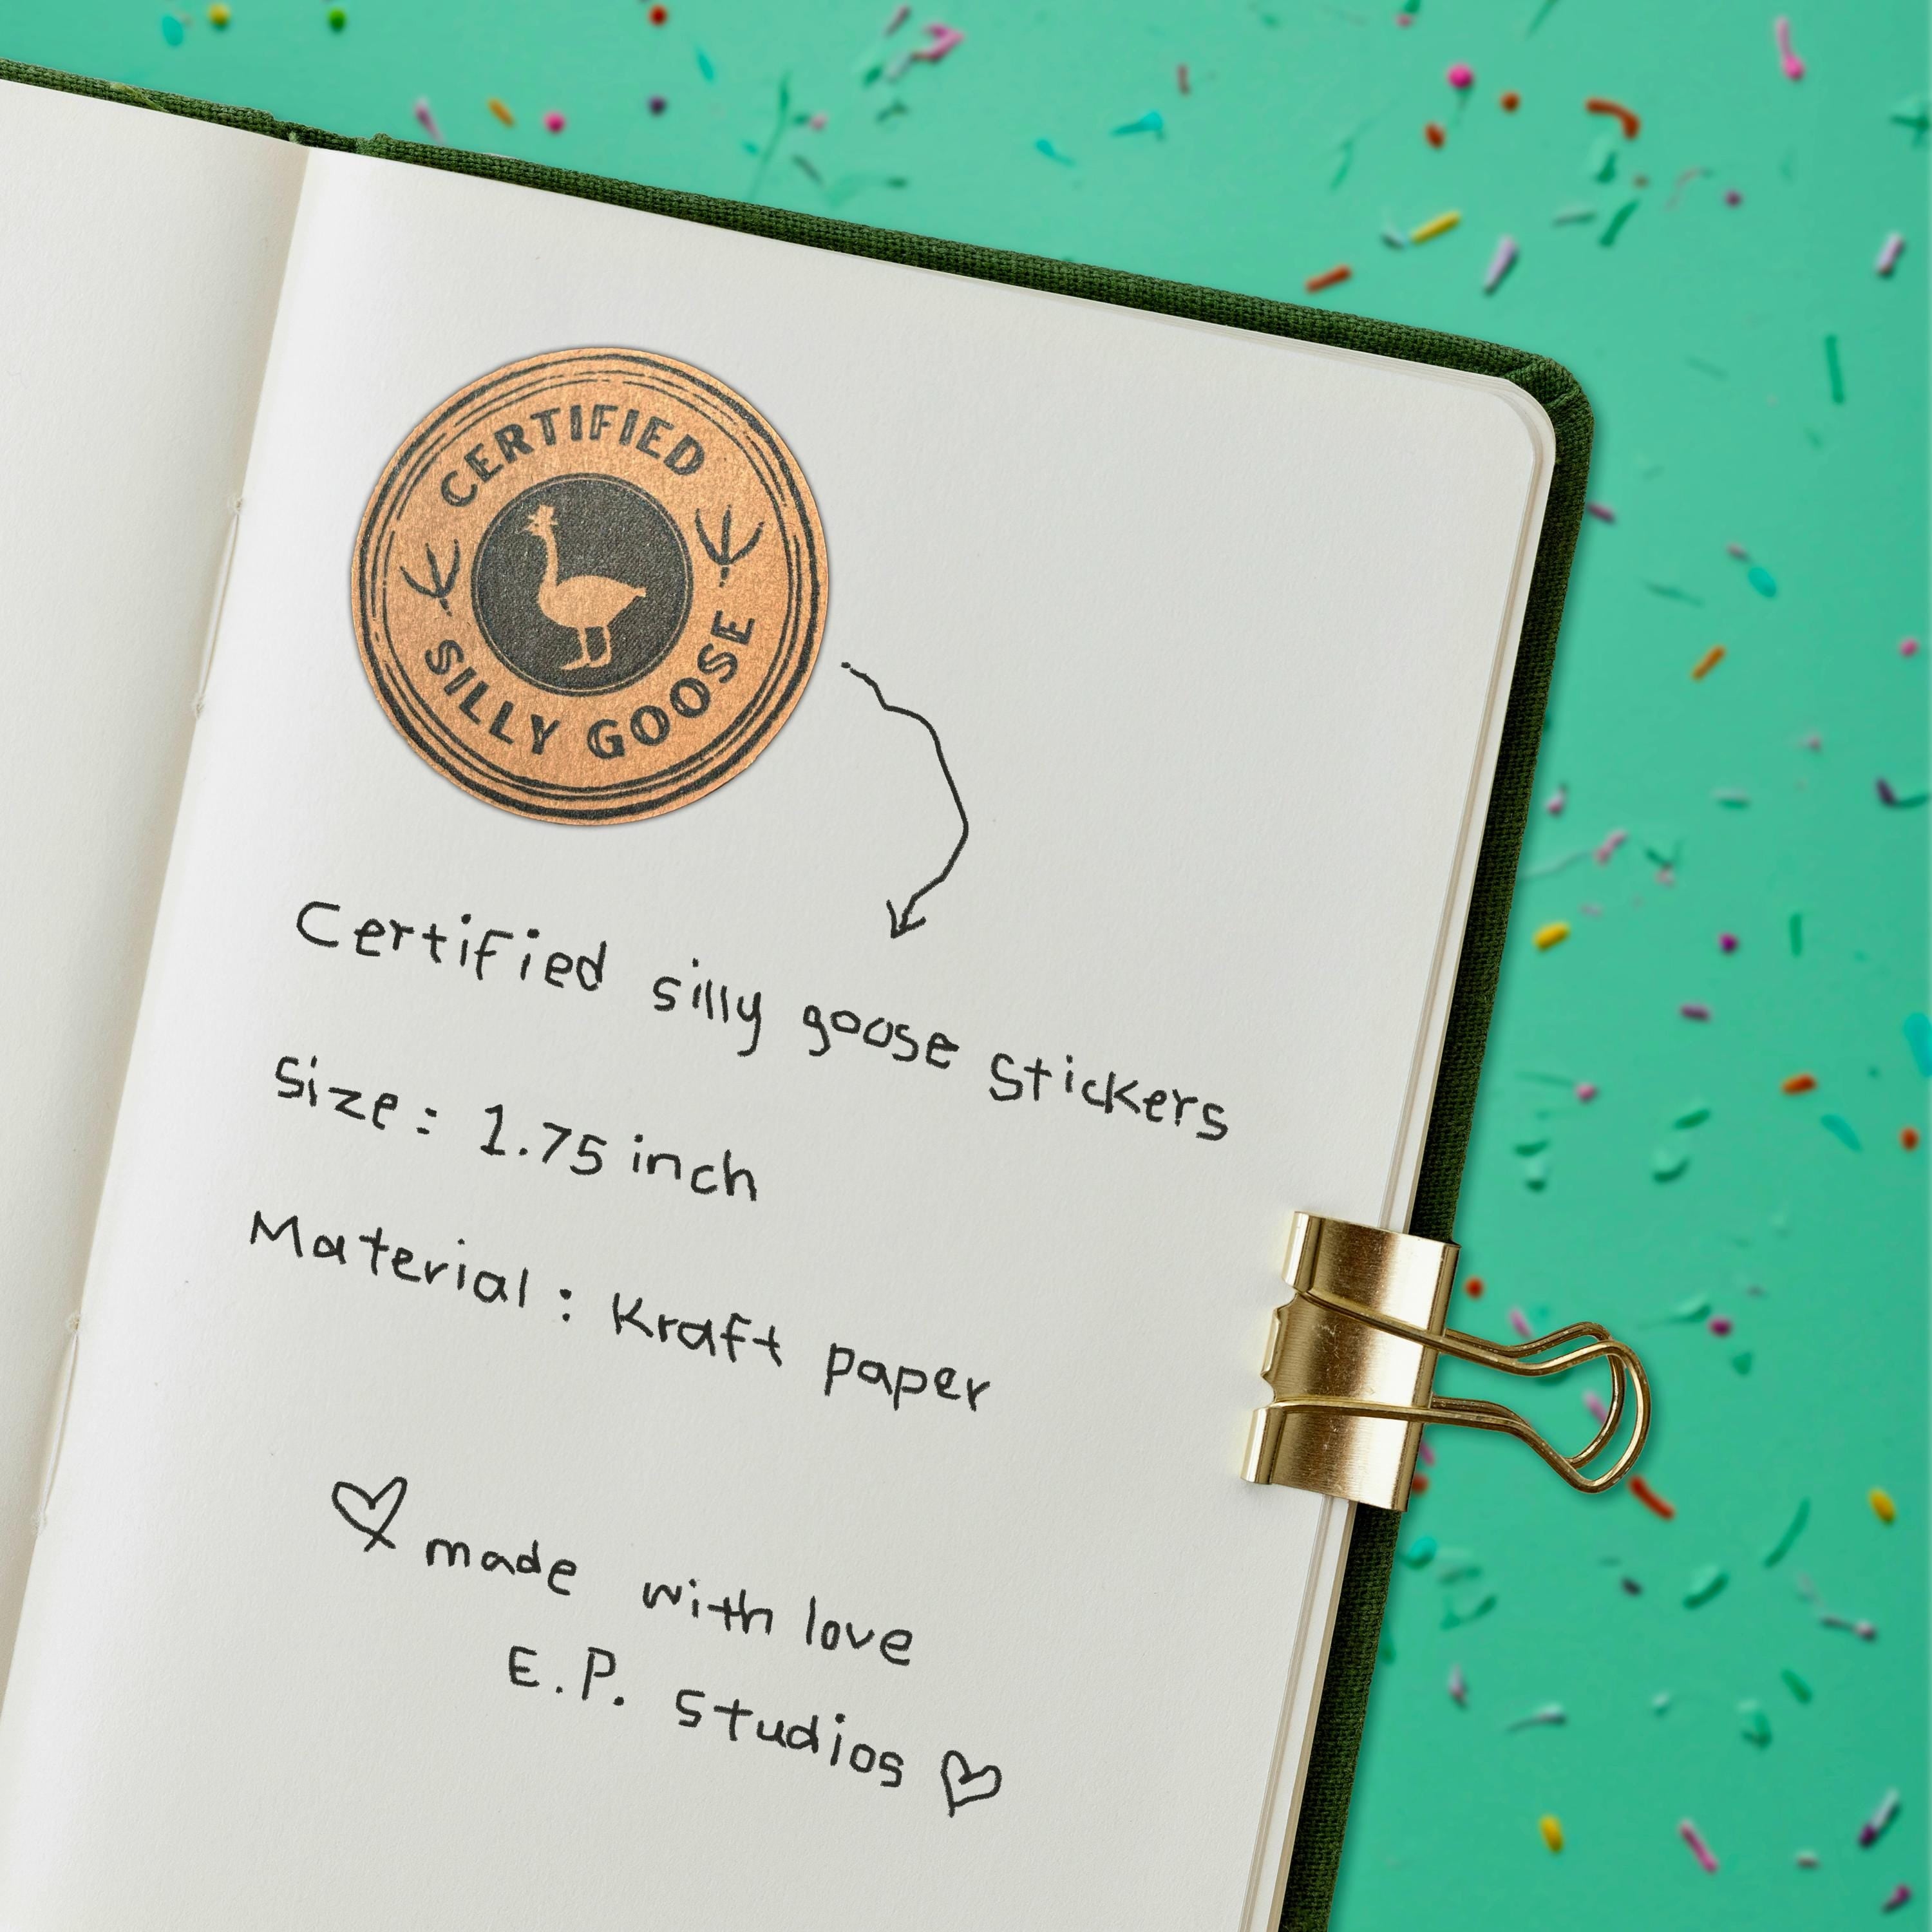 CERTIFIED
SILLY GOOSE
Certified silly goose stickers
Size: 1.75 inch
Material: Kraft paper
made with love
E.P. studios